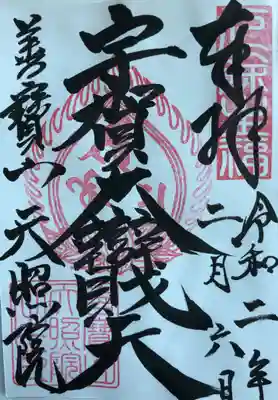 奉拝
令和二年
二月六日
宇賀大辯財天
善寶山天照院